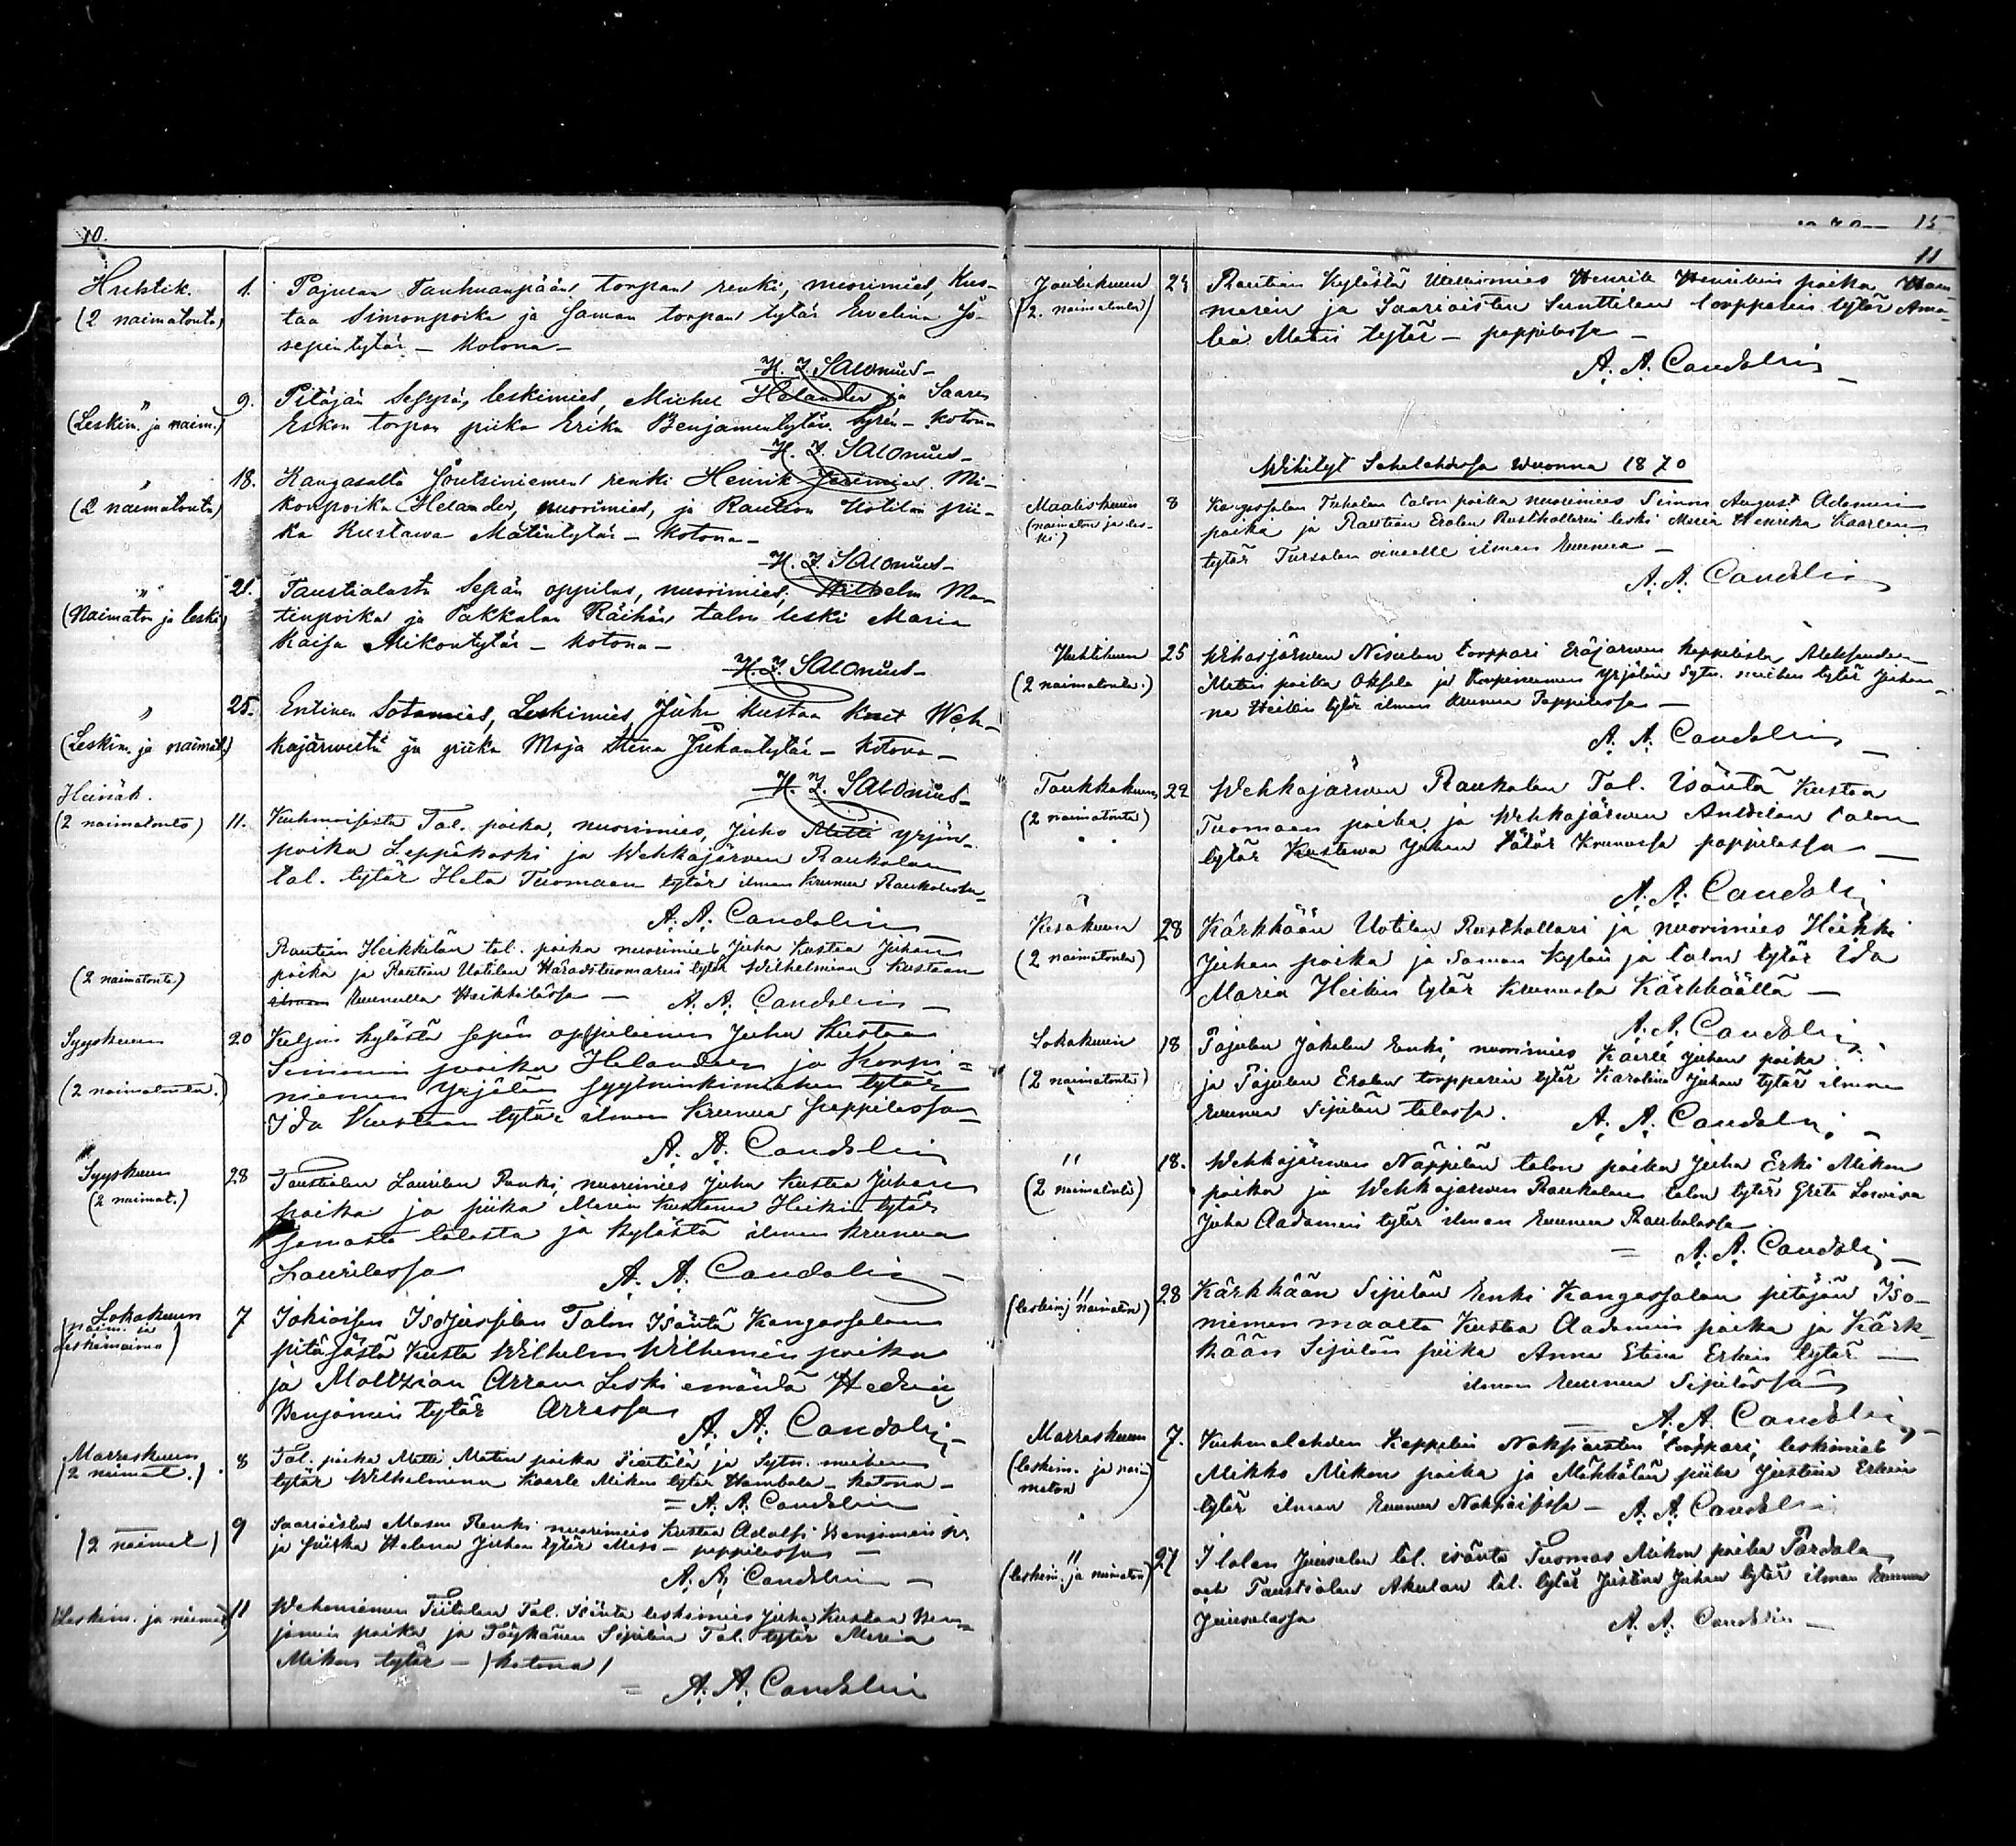 10.
Huhtik.
(2 naimatonta)
1. Pajulan Tanhuanpään torpan renki, nuorimies, Kus-
taa Simonpoika ja saman torpan tytär Ewelina Jo-
sepintytär - kotona -
H. J. Salonius -
"
(Leskim. ja naim.)
9. Pitäjän seppä, leskimies, Michel Helander ja Saaren
Eskon torpan piika Erika Benjamintytär - kotona
H. J. Salonius -
"
(2 naimatonta)
18. Kangasalta Joutsiniemen renki Henrik Jeremias Mi-
konpoika Helander, nuorimies, ja Raution Uotilan pii-
ka Kustawa Matintytär - kotona -
H. J. Salonius -
"
(Naimaton ja leski)
21. Taustialasta Sepän oppilas, nuorimies, Wilhelm Ma-
tinpoika ja Pakkalan Räihän talon leski Maria
Kaisa Mikontytär - kotona -
H. J. Salonius -
"
(Leskim. ja naimat.)
25. Entinen Sotamies, Leskimies Juha Kustaa Weh-
kajärweltä ja piika Maja Stina Juhantytär - kotona -
H. J. Salonius -
Heinäk.
(2 naimatonta)
11. Kuhmoisista Tal. poika, nuorimies, Juho Matti Yrjön-
poika Leppäkoski ja Wehkajärwen Raukolan
tal. tytär Heta Tuomaan tytär ilman kruunua Raukolassa
A. A. Candolin
(2 naimatonta)
Rautein Heikkilän tal. poika nuorimies Juha Kustaa Juhan
poika ja Rautun Uotilan Häradstuomarin tytär Wilhelmina Kustaan
ilman kruunulla Heikkilässa - A. A. Candolin -
Syyskuun
(2 naimatonta.)
20 Keljon kylästä sepän oppilainen Juha Kustaa
Simunin poika Helander ja Korpi=
niemen Yrjölän syytninkimiehen tytär
Ida Kustaan tytär ilman kruunua pappilassa
A. A. Candolin
Syyskuun
(2 naimat.)
28 Taustialan Laurilan Renki, nuorimies Juha Kustaa Juhan
poika ja piika Maria Kustawa Heikin tytär
samasta talosta ja kylästä ilman kruunua
Laurilassa A. A. Candolin -
Lokakuun
(naim. ja
Leskivaimo)
7 Isojussilan Talon Isäntä Kangasalan
pitäjästä Kusta Wilhelm Wilhemin poika
ja Moltzian Arran Leski emäntä Hedwig
Benjamin tytär Arrassa
A. A. Candolin -
Marraskuun
(2 naimat.)
8 Tal. poika Matti Matin poika Pentilä ja Sytn. miehen
tytär Wilhelmina Kaarle Mikon tytär - kotona -
= A. A. Candolin
(2 naimat)
9 Saarioisten Renki nuorimies Kustaa Adolfi Benjamin p.
ja piika Helena Juhan tytär - pappilassa -
A. A. Candolin -
(Leskim. ja naimat)
11 Wehoniemen Tiitolan Tal. Isäntä leskimies Juha Kustaa Ben=
jamin poika ja Sipilän Tal. tytär Maria
Mikon tytär - (kotona)
= A. A. Candolin
15
11
Joulukuun
(2. naimatonta)
Rautian Kylästä Henrik Henrikin poika
ja Saarioisten Sunttilan torpparin tytär Ama-
lia Matin tytär - pappilassa -
A. A. Candolin -
Wihityt Sahalahdessa wuonna 1870
Maaliskuun
(naimaton ja les-
ki)
8 Kangasalan Tuhalan talon poika nuorimies Simon August Adamin
poika ja Rautian Erolan Rusthollarin leski Maria Henrika Kaarlen
tytär ilman kruunua -
A. A. Candolin
Huhtikuun
(2 naimatonta.)
25 Wihasjärwen Nisulan torppari Eräjärwen kappelista, Aleksander
Matin poika Oksala ja Korpiniemen Yrjölän Sytn. miehen tytär Juhan-
na Heikin tytär ilman kruunua Pappilassa -
A. A. Candolin -
Toukokuun
(2 naimatonta)
22 Wehkajärwen Raukolan Tal. Isäntä Kustaa
Tuomaan poika ja Wehkajärwen Anttilan talon
tytär Kustawa Juhan tytär Kruunussa pappilassa -
A. A. Candolin
Kesäkuun
(2 naimatonta)
28 Kärkkään Uotilan Rusthollari ja nuorimies Heikki
Juhan poika ja saman kylän ja talon tytär Ida
Maria Heikin tytär Kruunussa Kärkkäällä -
A. A. Candolin
Lokakuun
(2 naimatonta)
18 Pajulan Jokelan Renki, nuorimies Kaarle Juhan poika
ja Pajulan Erolan torpparin tytär Karolina Juhan tytär ilman
kruunua Sipilän talossa. A. A. Candolin -
"
(2 naimatonta)
18. Wehkajärwen Näppilän talon poika Juha Erki Mikon
poika ja Wehkajärwen Raukolan talon tytär Greta Lowisa
Juha Aadamin tytär ilman kruunua Raukolassa
= A. A. Candolin -
"
(leskim. naimaton)
28 Kärkkään Sipilän Renki Kangasalan pitäjän Iso-
niemen maalta Kustaa Aadamin poika ja Kärk-
kään Sipilän piika Anna Stina Erkin tytär -
ilman kruunua Sipilässä
= A. A. Candolin -
Marraskuun
(leskim. ja nai-
maton)
7. Kuhmalahden Kappelin torppari, leskimies
Mikko Mikon poika ja Mäkkölän piika Justina Erkin
tytär ilman kruunua - A. A. Candolin
"
(leskim. ja naimaton)
27 Ilolan Juusulan tal. isäntä Tuomas Mikon poika Pardala
och Taustialan Akulan tal. tytär Justina Juhan tytär ilman kruunua
Juusulassa A. A. Candolin -